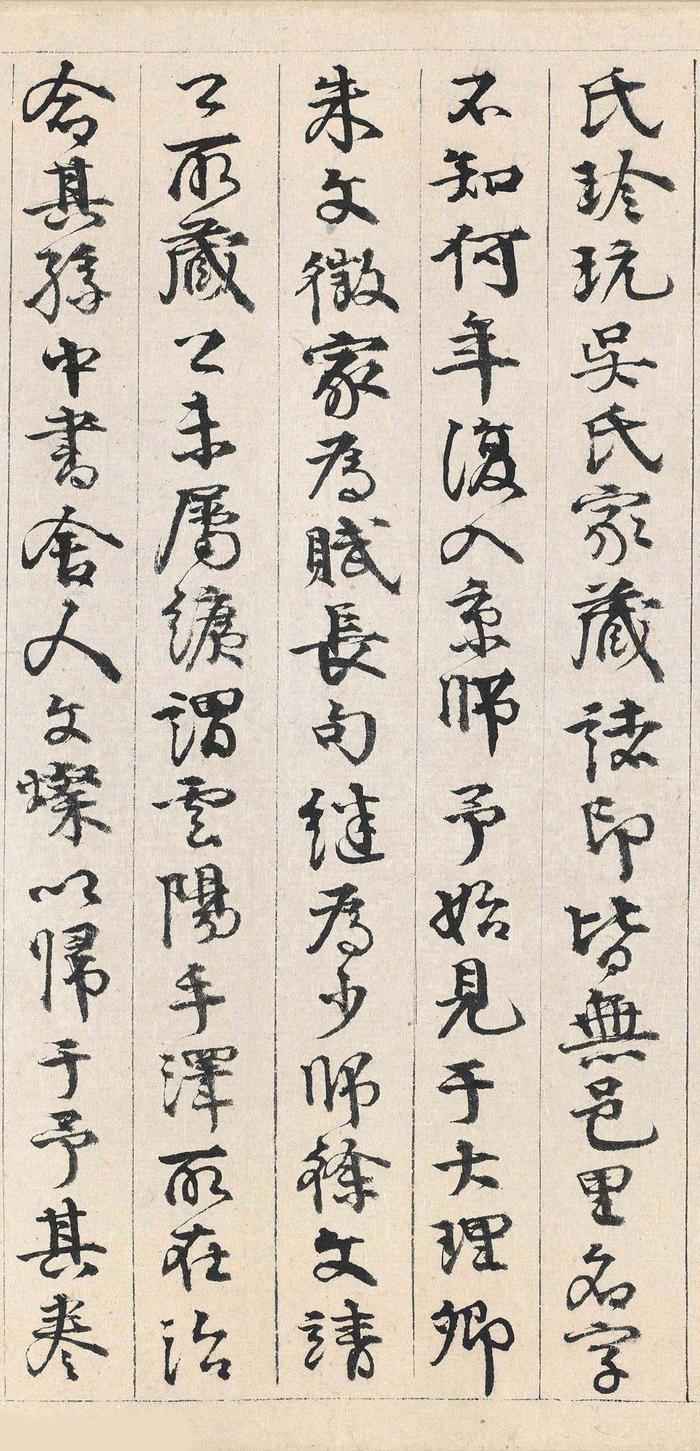 氏珍玩吳氏家藏諸印皆無邑里名字
不知何年復入京師予始見于大理卿
朱文徵家為賦長句继為少師徐文靖
公所藏公未屬纊謂雲陽手澤所在治
命其孫中書舍人文燦以歸于予其卷